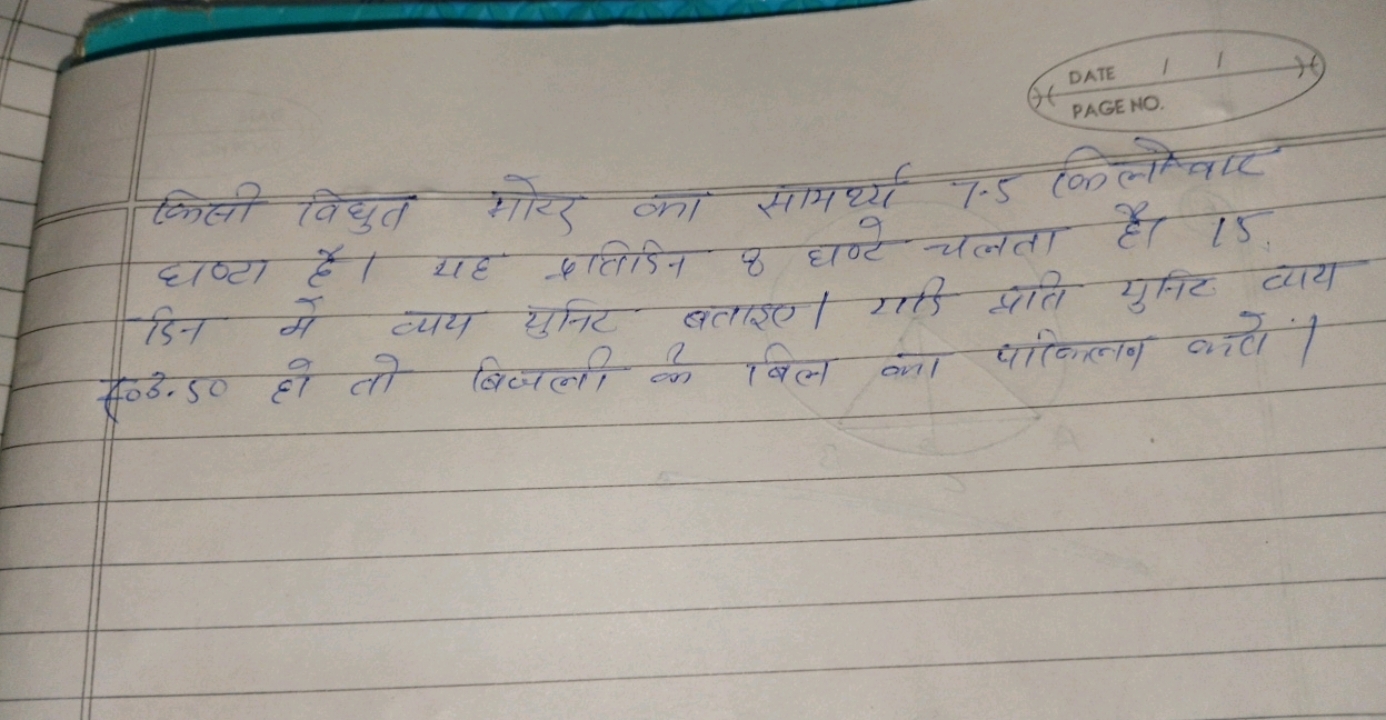 DATE / /
PAGE NO.
किसी विधुत मोटर का सामर्थ्य 7.5 किलोवाट
घण्टा है। यह प्रतिदिन 8 घण्टे चलता है। 15
दिन में व्यय युनिट बताइए। यदि प्रति युनिट व्यय
₹03.50 हो तो बिजली के बिल का परिकलन करो।